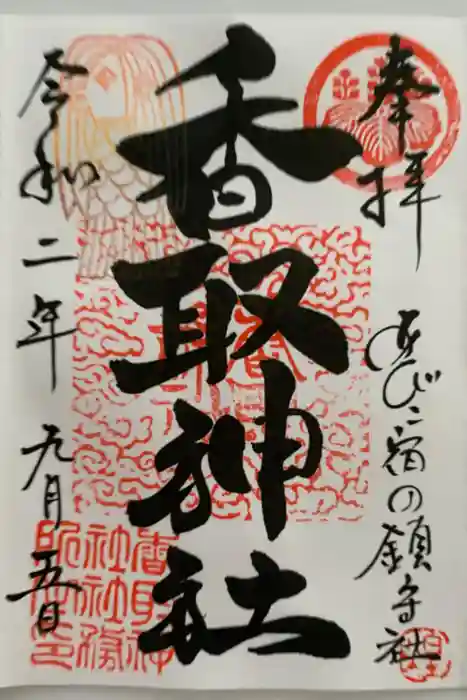 奉拝
あびこ宿の鎮守社
香取神社
令和二年九月五日
香取神
社社務
所之印